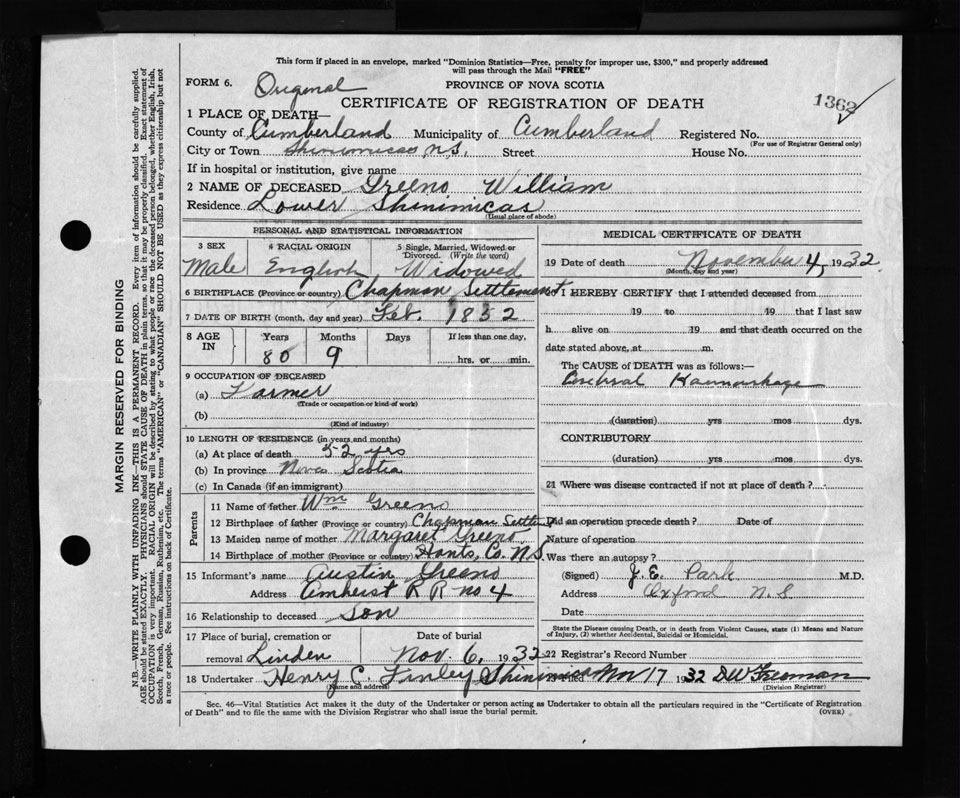 This form if placed in an envelope, marked "Dominion Statistics—Free, penalty for improper use, $300," and properly addressed
will pass through the Mail "FREE"
FORM 6. Original
PROVINCE OF NOVA SCOTIA
CERTIFICATE OF REGISTRATION OF DEATH
1362
1 PLACE OF DEATH—
County of Cumberland Municipality of Cumberland Registered No.
(For use of Registrar General only)
City or Town Shinimicas N.S. Street House No.
If in hospital or institution, give name
2 NAME OF DECEASED Greeno William
Residence Lower Shinimicas
(Usual place of abode)
PERSONAL AND STATISTICAL INFORMATION
3 SEX 4 RACIAL ORIGIN 5 Single, Married, Widowed or Divorced. (Write the word)
Male English Widowed
6 BIRTHPLACE (Province or country) Chapman Settlement
7 DATE OF BIRTH (month, day and year) Feb. 1852
8 AGE IN Years Months Days If less than one day,
80 9 hrs. or min.
9 OCCUPATION OF DECEASED
(a) Farmer
(Trade or occupation or kind of work)
(b)
(Kind of industry)
10 LENGTH OF RESIDENCE (in years and months)
(a) At place of death 52 yrs
(b) In province Nova Scotia
(c) In Canada (if an immigrant)
Parents
11 Name of father Wm Greeno
12 Birthplace of father (Province or country) Chapman Settlemt
13 Maiden name of mother Margaret Greeno
14 Birthplace of mother (Province or country) Hants, Co. N.S.
15 Informant's name Austin Greeno
Address Amherst R R no 4
16 Relationship to deceased Son
17 Place of burial, cremation or removal Linden Date of burial Nov. 6, 1932
18 Undertaker Henry C. Finley Shinimicas
(Name and address)
MEDICAL CERTIFICATE OF DEATH
19 Date of death November 4, 1932.
(Month, day and year)
I HEREBY CERTIFY that I attended deceased from
19 to 19 that I last saw
h alive on 19 and that death occurred on
date stated above, at m.
The CAUSE of DEATH was as follows:
Cerebral Haemorrhage
(duration) yrs mos dys.
CONTRIBUTORY
(duration) yrs mos dys.
21 Where was disease contracted if not at place of death?
Did an operation precede death? Date of
Nature of operation
Was there an autopsy?
(Signed) J. E. Park M.D.
Address Oxford N.S
Date
State the Disease causing Death, or in death from Violent Causes, state (1) Means and Nature
of Injury, (2) whether Accidental, Suicidal or Homicidal.
22 Registrar's Record Number
Nov 17 1932 DW Freeman
(Division Registrar)
Sec. 46—Vital Statistics Act makes it the duty of the Undertaker or person acting as Undertaker to obtain all the particulars required in the "Certificate of Registration
of Death" and to file the same with the Division Registrar who shall issue the burial permit. (OVER)
MARGIN RESERVED FOR BINDING
N.B.—WRITE PLAINLY WITH UNFADING INK—THIS IS A PERMANENT RECORD. Every item of information should be carefully supplied.
AGE should be stated EXACTLY. PHYSICIANS should STATE CAUSE OF DEATH in plain terms, so that it may be properly classified. Exact statement of
OCCUPATION is very important. RACIAL ORIGIN will be described by stating to what people or race the deceased person belonged, whether English, Irish,
Scotch, French, German, Russian, Ruthenian, etc. The terms "AMERICAN" or "CANADIAN" SHOULD NOT BE USED as they express citizenship but not
a race or people. See instructions on back of Certificate.